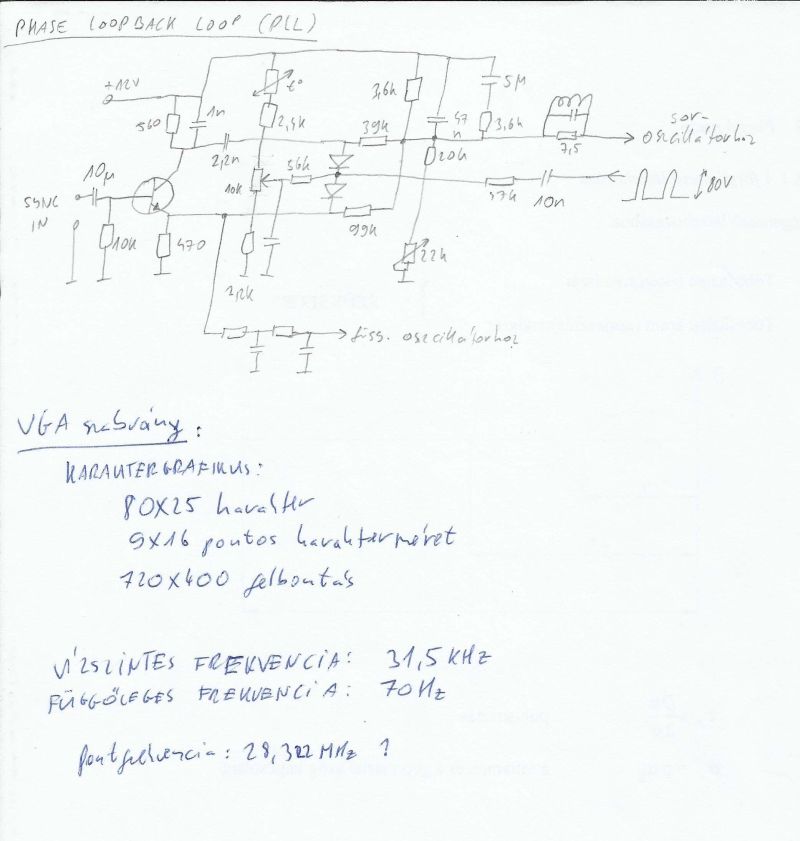 PHASE LOOPBACK LOOP (PLL)
+12V
560
1n
t°
2,4k
3,6k
47
n
5µ
3,6k
39k
20k
7,5
sor-
oszcillátorhoz
10µ
SYNC
IN
2,2n
10k
56k
47k
10n
80V
10k
470
2,2k
99k
22k
függ. oszcillátorhoz
VGA szabvány:
KARAKTERGRAFIKUS:
80X25 karakter
9X16 pontos karakterméret
720X400 felbontás
VÍZSZINTES FREKVENCIA: 31,5 KHz
FÜGGŐLEGES FREKVENCIA: 70Hz
pontfrekvencia: 28,322 MHz ?